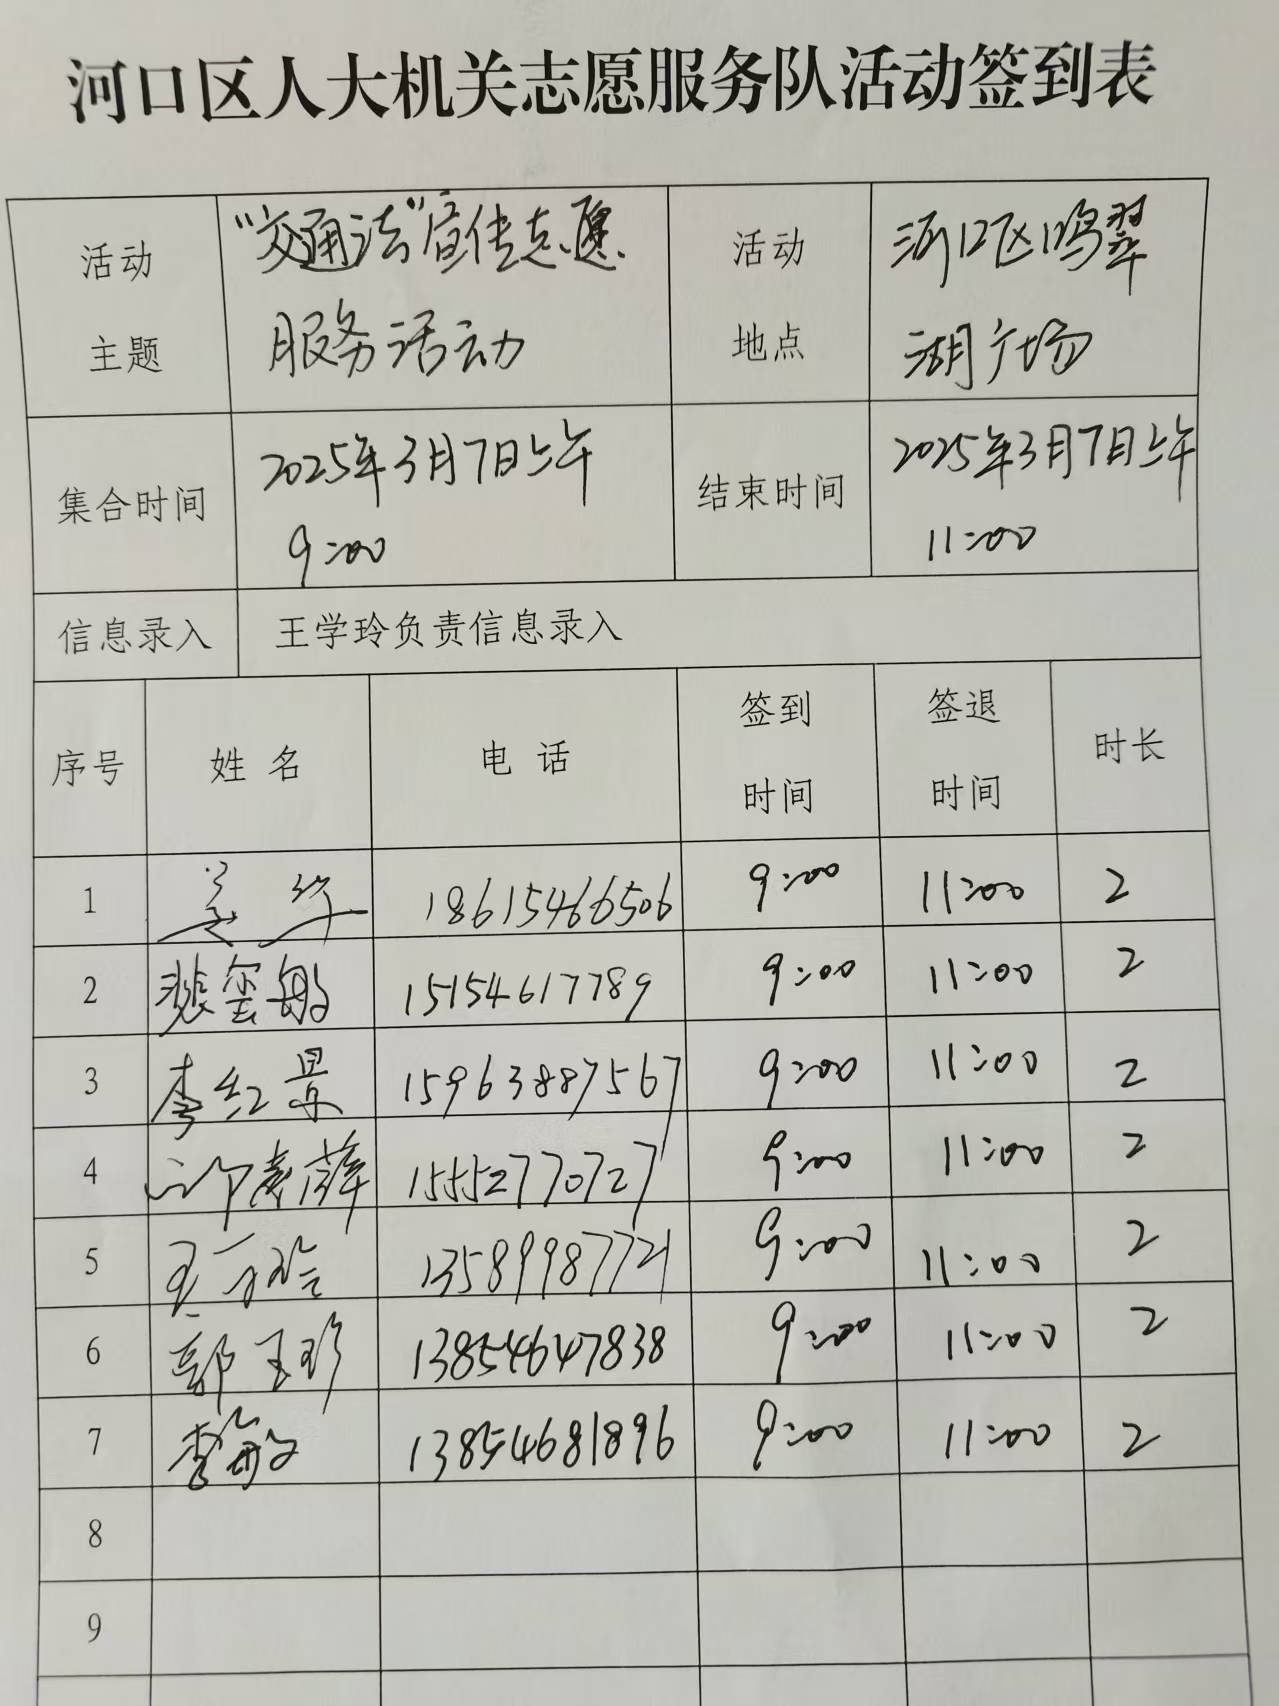 河口区人大机关志愿服务队活动签到表
活动
主题
“交通法”宣传志愿
服务活动
活动
地点
河口区鸣翠
湖广场
集合时间
2025年3月7日上午
9:00
结束时间
2025年3月7日上午
11:00
信息录入 王学玲负责信息录入
序号 姓名 电话 签到时间 签退时间 时长
1 18615466506 9:00 11:00 2
2 15154617789 9:00 11:00 2
3 李红景 15963887567 9:00 11:00 2
4 15552770727 9:00 11:00 2
5 13589987721 9:00 11:00 2
6 郭玉珍 13854647838 9:00 11:00 2
7 李敏 13854681896 9:00 11:00 2
8
9